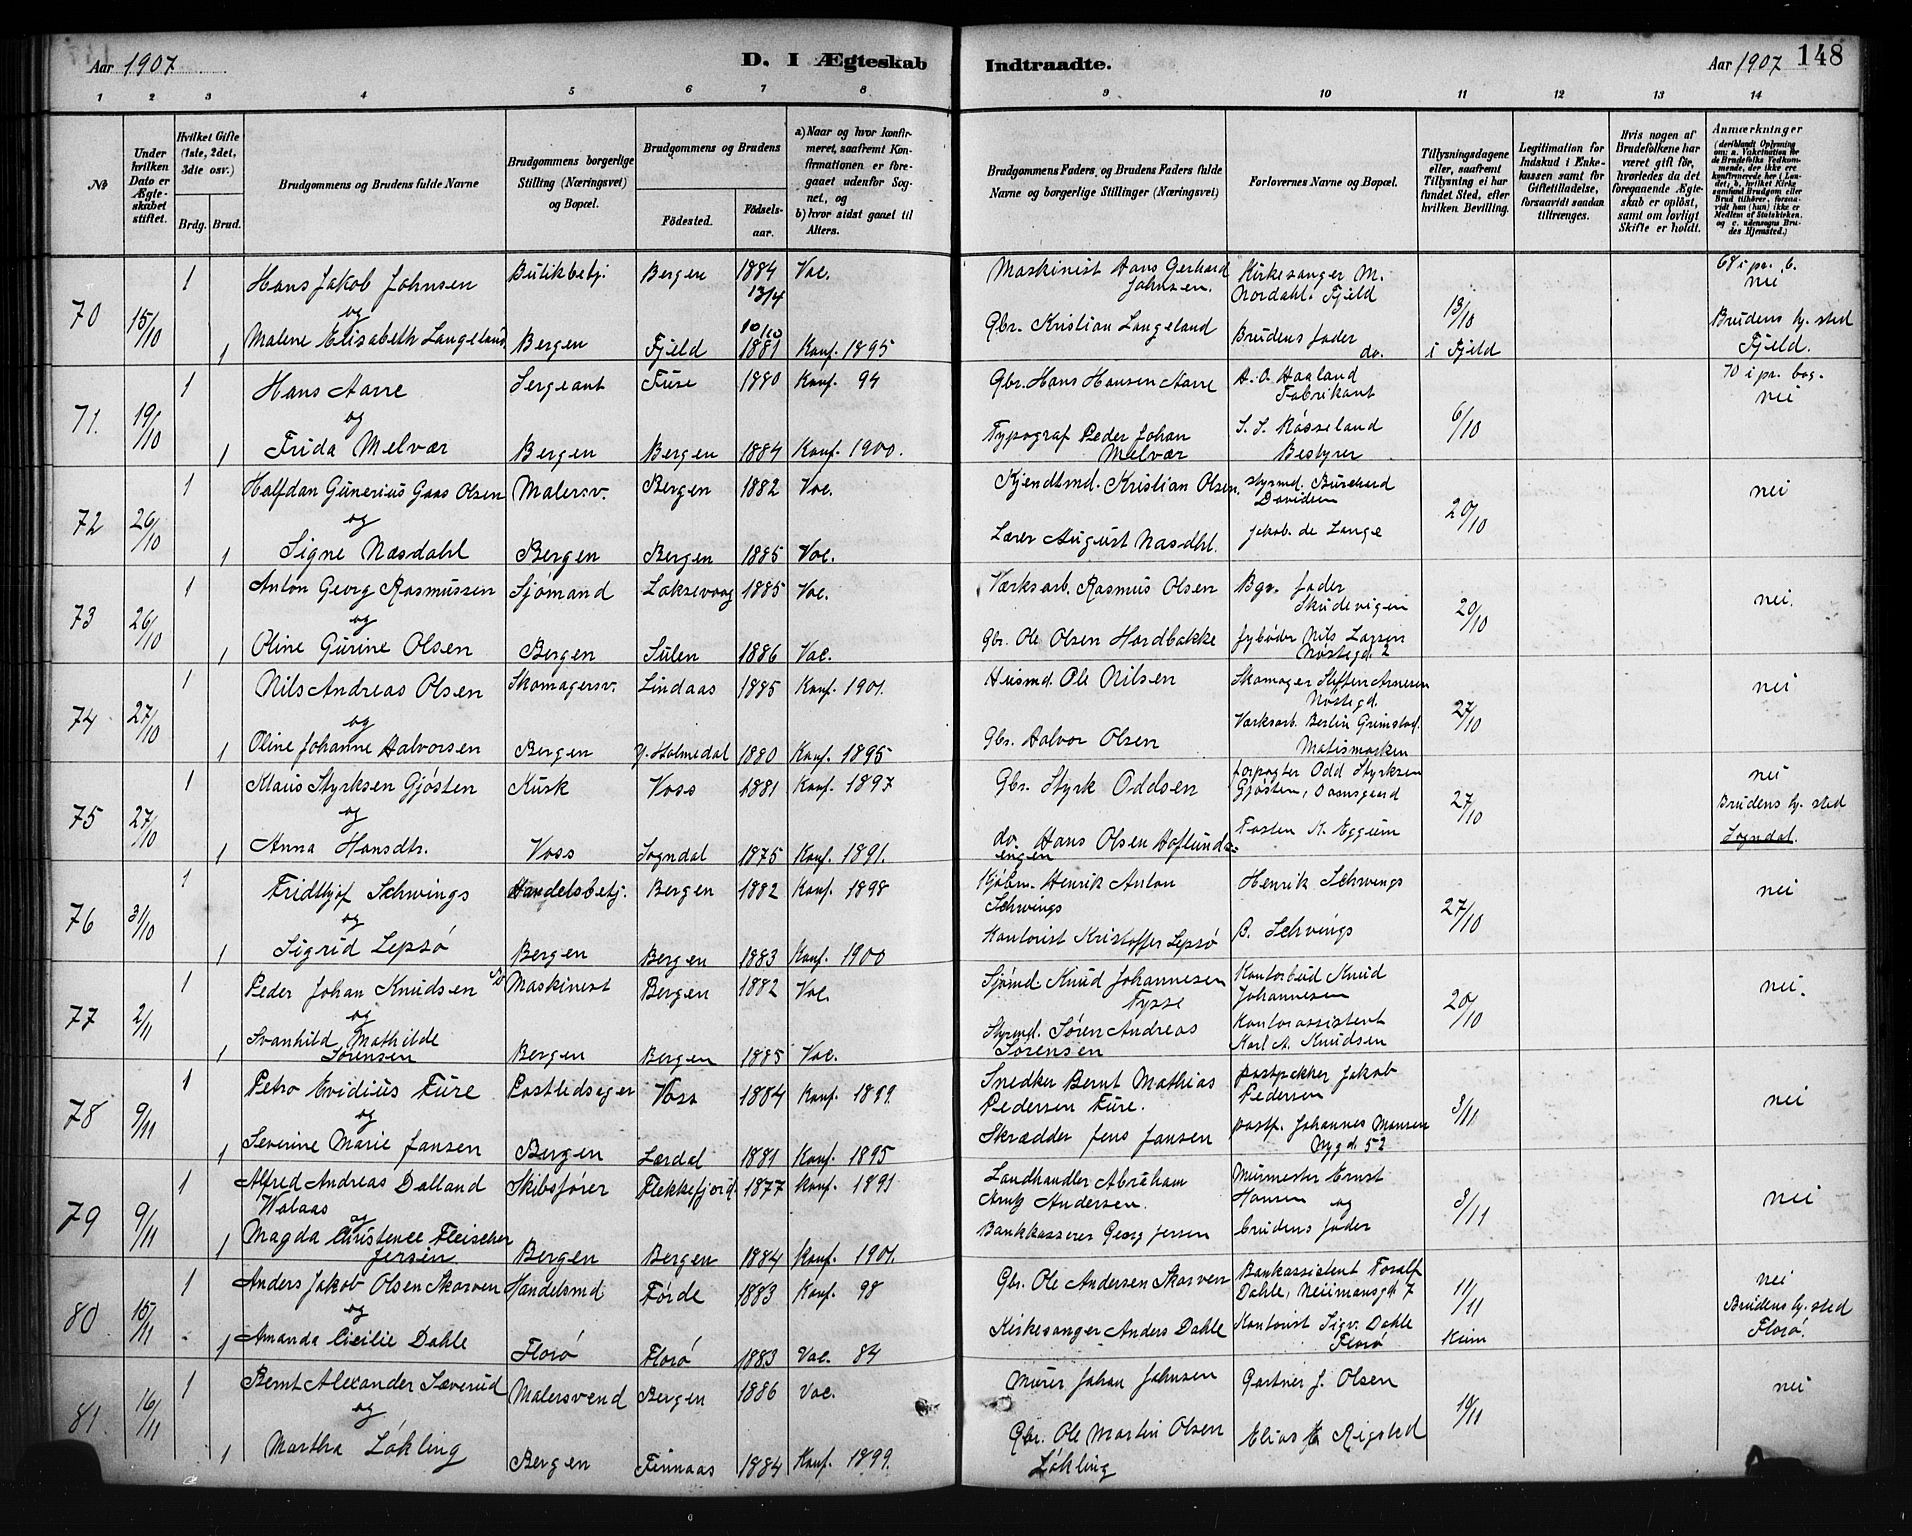 Aar 1907
D. I Ægteskab Indtraadte.
Aar 1907 148
1 2 3 4 5 6 7 8 9 10 11 12 13 14
No
Under hvilken Dato er Ægteskabet stiftet.
Hvilket Gifte (1ste, 2det, 3die osv.)
Brdg. Brud.
Brudgommens og Brudens fulde Navne
Brudgommens borgerlige Stilling (Næringsvei) og Bopæl.
Brudgommens og Brudens
Fødested. Fødselsaar.
a) Naar og hvor konfirmeret, saafremt Konfirmationen er foregaaet udenfor Sognet, og
b) hvor sidst gaaet til Alters.
Brudgommens Faders, og Brudens Faders fulde Navne og borgerlige Stillinger (Næringsvei)
Forlovernes Navne og Bopæl.
Tillysningsdagene eller, saafremt Tillysning ei har fundet Sted, efter hvilken Bevilling.
Legitimation for Indskud i Enkekassen samt for Giftetilladelse, forsaavidt saadan tiltrænges.
Hvis nogen af Brudefolkene har været gift før, hvorledes da det foregaaende Ægteskab er opløst, samt om lovligt Skifte er holdt.
Anmærkninger (deriblandt Oplysning om: a. Vakcination for de Brudefolks Vedkommende, der ikke ere konfirmerede her i Landet; b. hvilket Kirkesamfund Brudgom eller Brud tilhører, forsaavidt han (hun) ikke er Medlem af Statskirken, og c. udensogns Brudes Hjemsted.)
70 15/10 1 Hans Jakob Johnsen Butikbetj. Bergen 1884 13/4 Vac. Maskinist Hans Gerhard Johnsen. Kirkesanger M. Nordahl. Fjeld 13/10 68 i pr. b. nei
og
1 Malene Elisabeth Langeland Bergen Fjeld 10/10 1881 Konf. 1895 Gbr. Kristian Langeland Brudens fader do. i Fjeld Brudens hj. sted Fjeld.
71. 19/10 1 Hans Aarre Sergeant Fure 1880 Konf. 94 Gbr. Hans Hansen Aarre A. O. Haaland Fabrikant 6/10 70 i pr. bog. nei
og
1 Frida Melvær Bergen Bergen 1884 Konf. 1900. Typograf Peder Johan Melvær S. S. Røsseland Bestyrer
72 26/10 1 Halfdan Gunerius Gaas Olsen Malersv. Bergen 1882 Vac. Kjendtmd. Kristian Olsen. Styrmd. Burchard Davidsen 20/10 nei
og
1 Signe Næsdahl Bergen Bergen 1885 Vac. Lærer August Næsdhl. Jakob de Lange
73 26/10 1 Anton Georg Rasmussen Sjømand Laksevaag 1885 Vac. Værksarb. Rasmus Olsen Bgr. fader Skudevigen 20/10 nei.
og
1 Oline Gurine Olsen Bergen Sulen 1886 Vac. Gbr. Ole Olsen Hardbakke fyrbøder Nils Larsen Nøstegd. 2
74 27/10 1 Nils Andreas Olsen Skomagersv. Lindaas 1885 Konf. 1901. Husmd. Ole Nilsen Skomager Steffen Arnesen Nøstegd. 27/10 nei
og
1 Oline Johanne Halvorsen Bergen Y. Holmedal 1880 Konf. 1895 Gbr. Halvor Olsen Værksarb. Berlin Grimstad. Matismarken
75 27/10 1 Klaus Styrksen Gjøsten Kusk Voss 1881 Konf. 1897 Gbr. Styrk Oddsen Forpagter Odd Styrksen Gjøsten, Damsgaard 27/10 nei
og
1 Anna Hansdtr. Voss Sogndal 1875 Konf. 1891. do. Hans Olsen Hoflundsengen Torsten K. Eggum Brudens hj. sted Sogndal.
76 31/10 1 Fridthjof Schwings Handelsbetj. Bergen 1882 Konf. 1898 Kjøbm. Henrik Anton Schwings Henrik Schwings 27/10 nei
og
1 Sigrid Lepsø Bergen Bergen 1883 Konf. 1900 Kontorist Kristoffer Lepsø B. Schwings
77 2/11 1 Peder Johan Knudsen Maskinist Bergen 1882 Vac. Sjømd. Knud Johannesen Tysse Kontorbud Knud Johannesen 20/10 nei.
og
1 Svanhild Mathilde Sørensen Bergen Bergen 1885 Vac. Styrmd. Søren Andreas Sørensen Kontorassistent Karl A. Knudsen
78 9/11 1 Petro Evidius Fure Postledsager Voss 1884 Konf. 1899. Snedker Bernt Mathias Pedersen Fure. postpakker Jakob Pedersen 3/11 nei
og
1 Severine Marie Jansen Bergen Lærdal 1881 Konf. 1895 Skrædder Jens Jansen postp. Johannes Monsen Nygd. 52
79 9/11 1 Alfred Andreas Dalland Walaas Skibsfører Flekkefjord. 1877 Konf. 1891 Landhandler Abraham Arntz Andersen. Murmester Ernst Hansen og 3/11 nei
og
1 Magda Christence Fleischer Jersin Bergen Bergen 1884 Konf. 1901. Bankkasserer Georg Jersen brudens fader
80 15/11 1 Anders Jakob Olsen Skorven Handelsmd Førde 1883 Konf. 98 Gbr. Ole Andersen Skorven Bankassistent Toralf Dahle, Neumansgd. 7 11/11 nei
og
1 Amanda Cecilie Dahle Florø Florø 1883 Vac. 84 Kirkesanger Anders Dahle Kontorist Sigv. Dahle Florø Kinn Brudens hj. sted Florø.
81. 16/11 1 Bernt Alexander Sæverud Malersvend Bergen 1886 Vac. Murer Johan Johnsen Gartner J. Olsen 10/11 nei
og
1 Martha Løkling Bergen Finnaas 1884 Konf. 1899. Gbr. Ole Martin Olsen Løkling Elias Rigsted